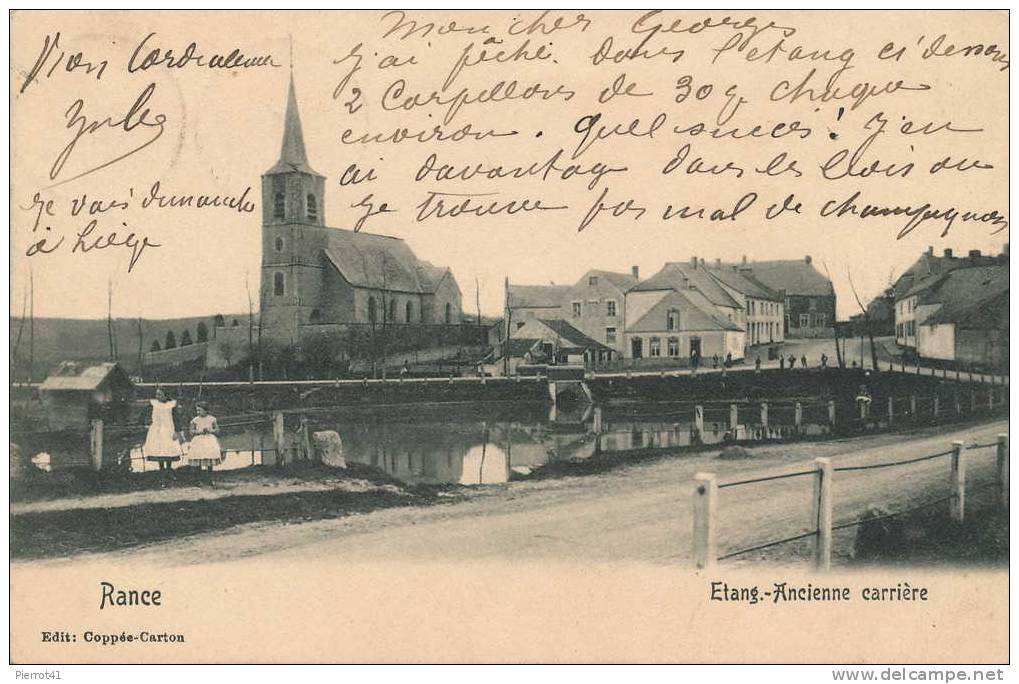 Mon cher Georges
J'ai pêché. Dans l'étang ci dessous
2 Carpillons de 30 gr chaque
environ. Quel succès! J'en
ai davantage dans les bois ou
je trouve pas mal de champignons
Bien Cordialement
Jules
Je vais dimanche
à Liège
Rance
Etang.-Ancienne carrière
Edit: Coppée-Carton
Pierrot41
www.delcampe.net